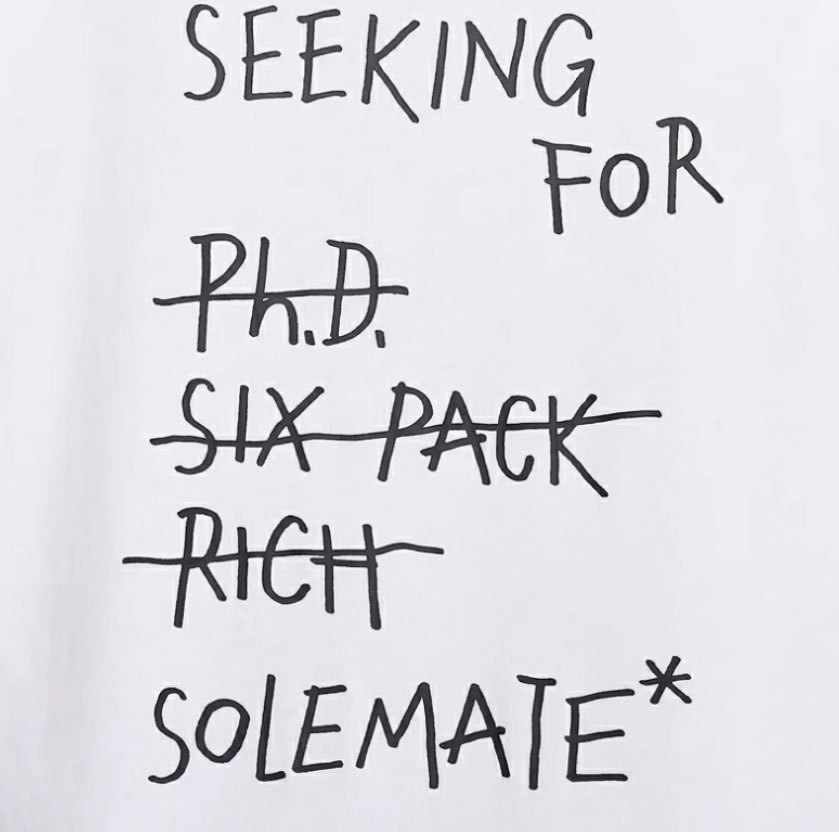 SEEKING
FOR
Ph.D.
SIX PACK
RICH
SOLEMATE*